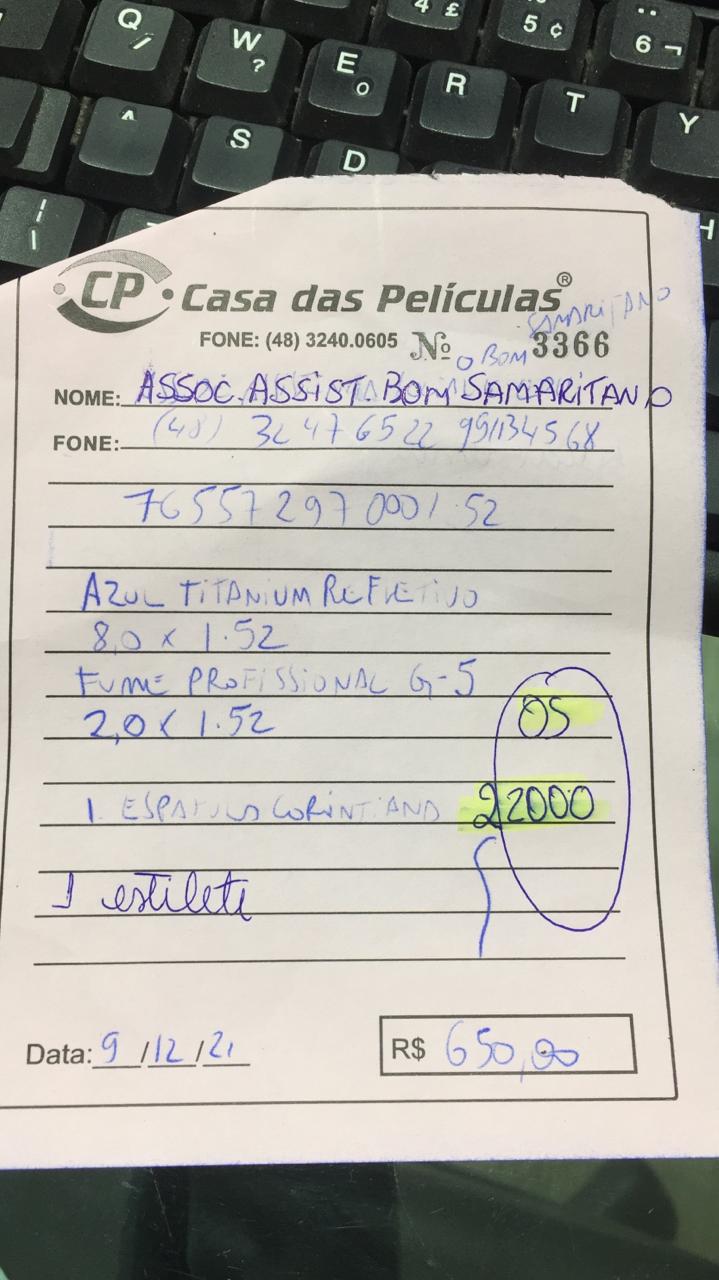 Q
W
?
E
O
R
T
Y
4 £
5 ¢
6 ¬
^
S
D
H
|
\
CP Casa das Películas®
FONE: (48) 3240.0605 Nº 3366
O BOM SAMARITANO
NOME: ASSOC. ASSIST BOM SAMARITANO
FONE: (48) 3247 6522 991134568
76557297 0001.52
AZUL TITANIUM REFLETIVO
8,0 x 1.52
FUME PROFISSIONAL G-5
2,0 x 1.52 05
1. ESPATULA 22000
1 estilete
Data: 9 /12 /21 R$ 650,00